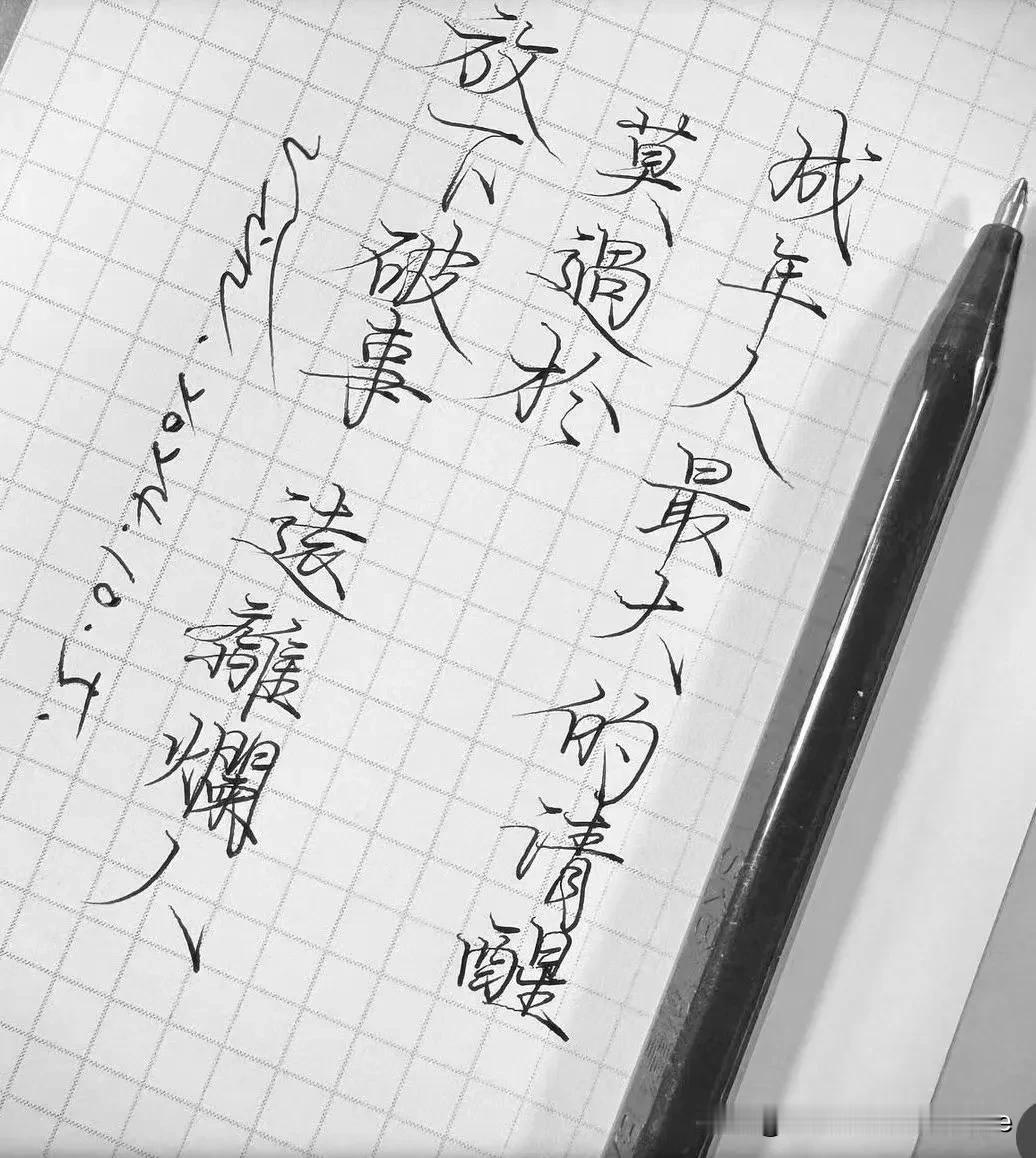 成年人最大的清醒
莫過於
放下破事 遠離爛人